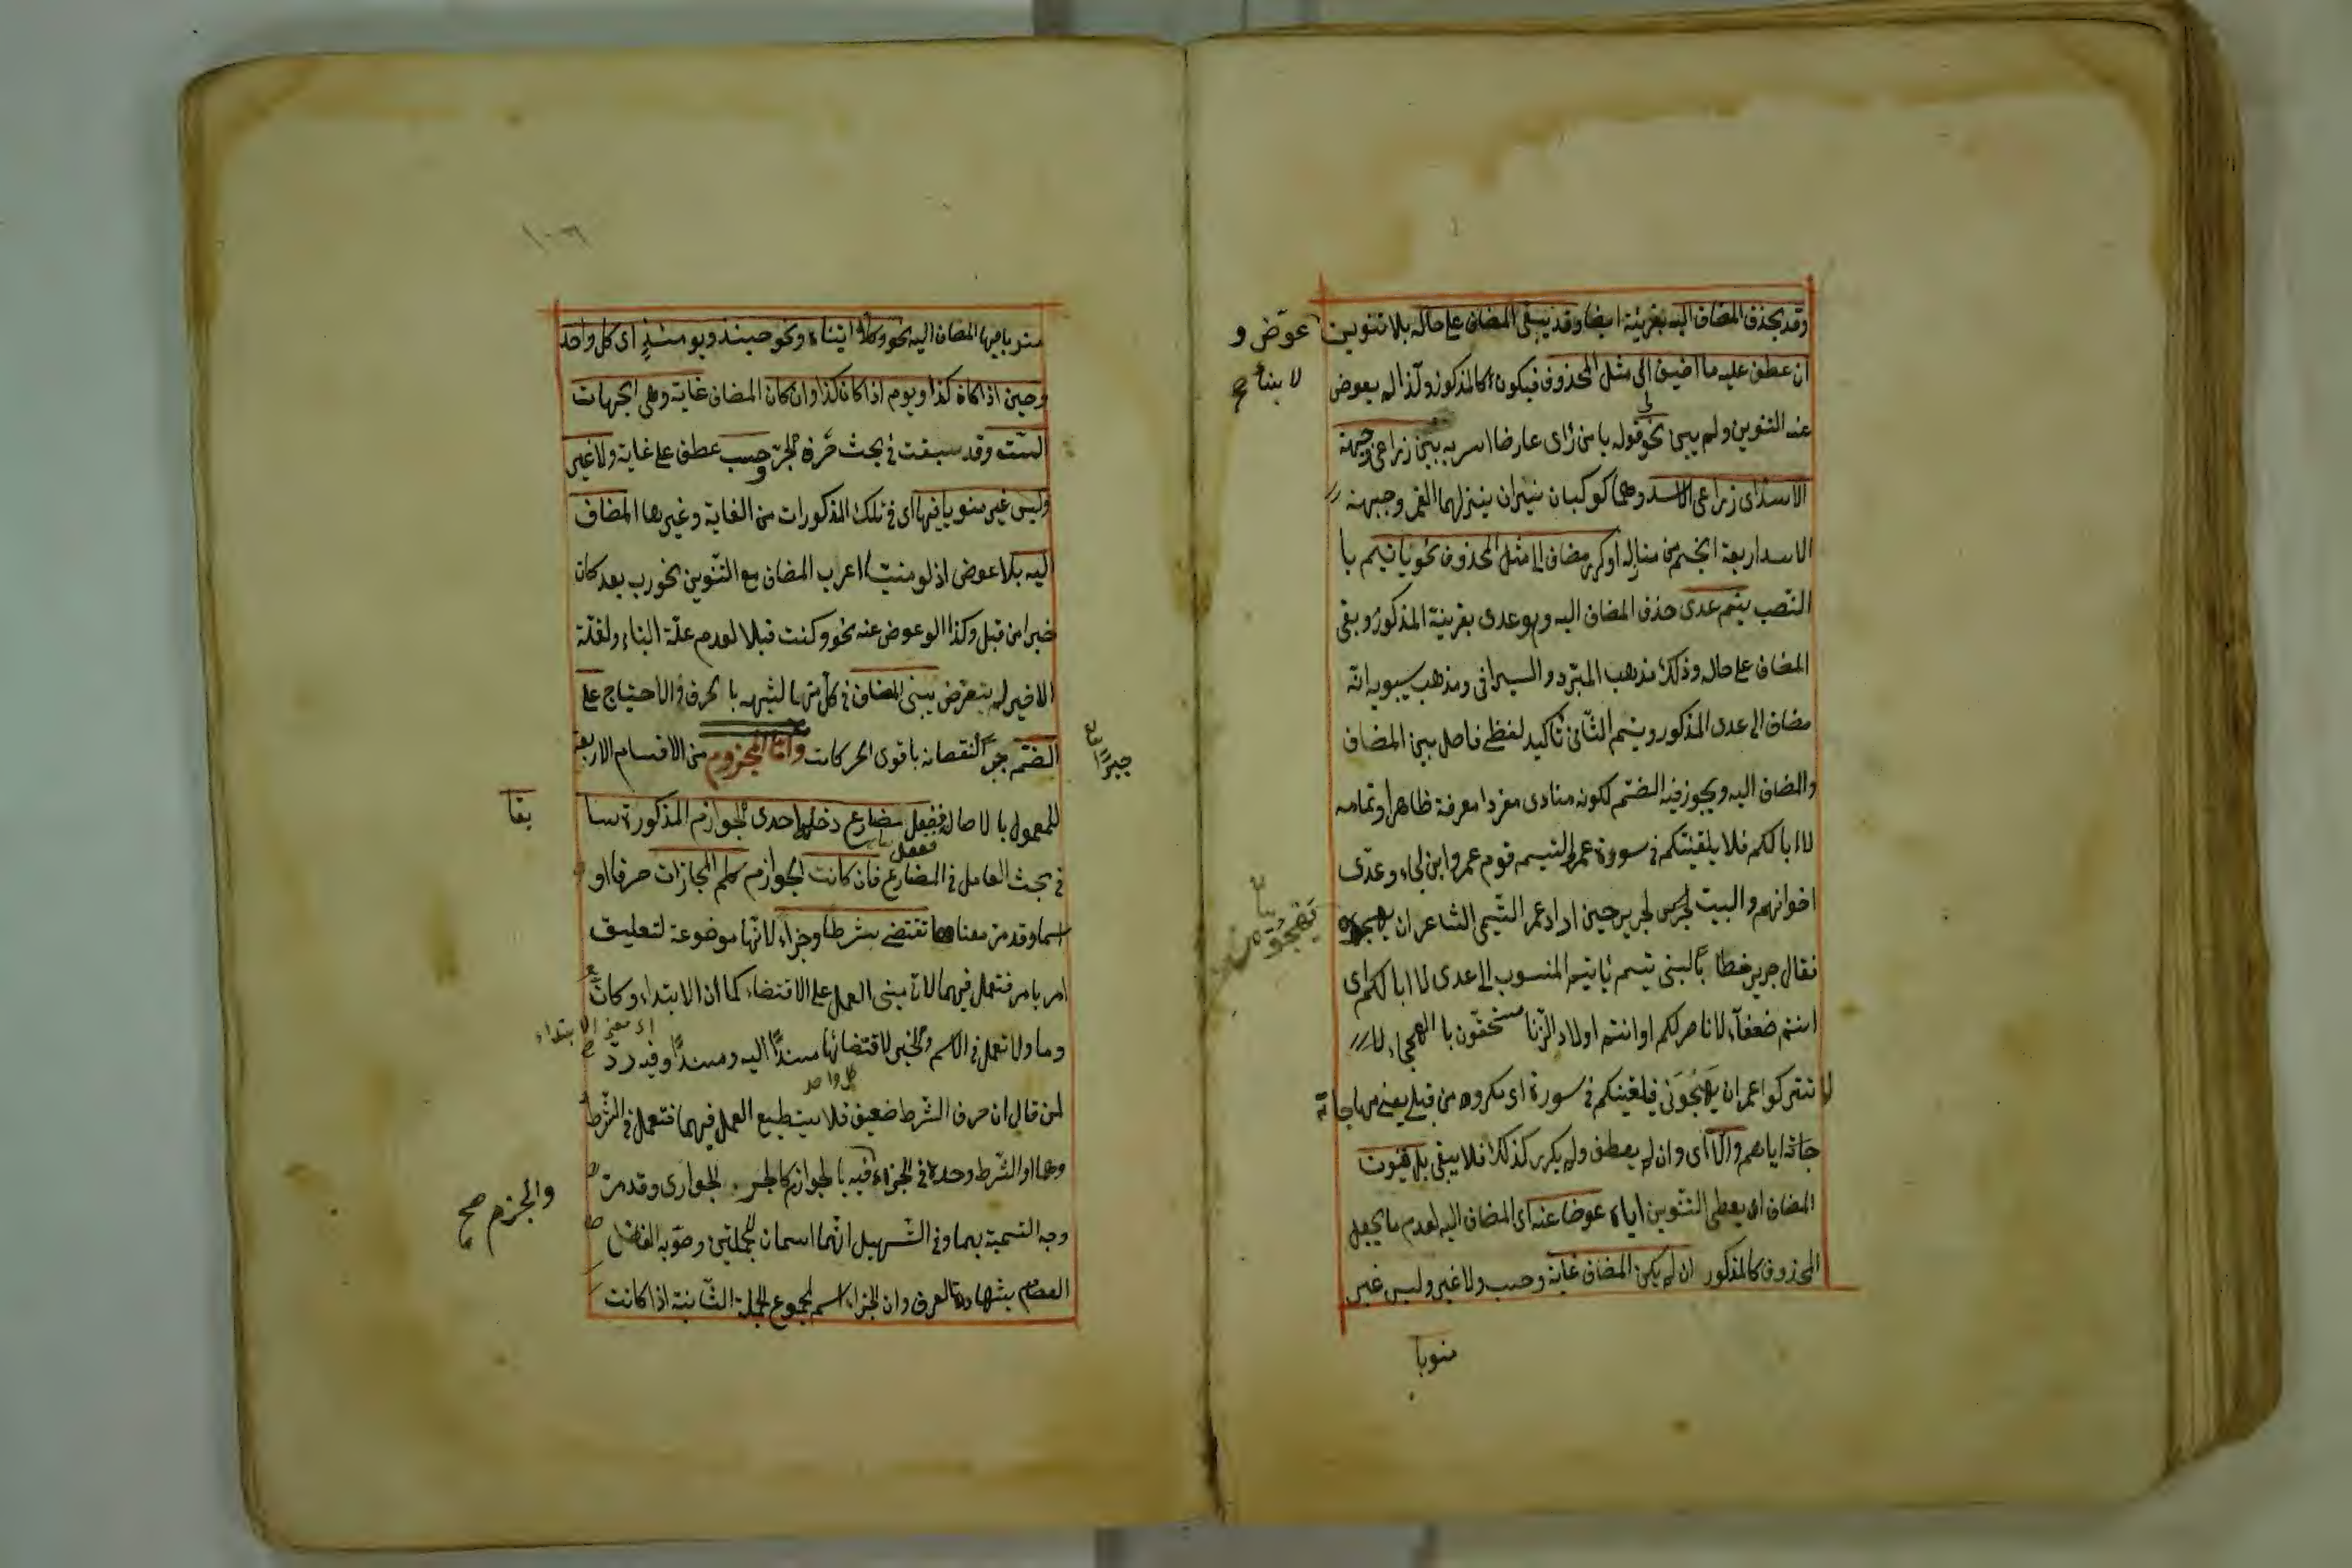 وقد يحذف المضاف اليه بقرينة ايضا وقد يبقى المضاف على حاله بلا تنوين
عوض و
لا بناء صح
ان عطف عليه ما اضيف الى مثل المحذوف فيكون كالمذكور ولذا لم يعوض
عنه التنوين ولم يبن نحو قوله يا من رأى عارضا اسر به بين ذراعى وجبهة
الاسد اى ذراعى الاسد وهما كوكبان نيران ينزلهما القمر وجبهة
الاسد اربعة انجم من منازله او كرر مضاف الى مثل المحذوف نحو يا تيم با
النصب يتم عدى حذف المضاف اليه وهو عدى بقرينة المذكور وبقى
المضاف على حاله وذلك مذهب المبرد والسيرافى ومذهب سيبويه انه
مضاف الى عدى المذكور ويتم الثانى تأكيد لفظى فاصل بين المضاف
والمضاف اليه ويجوز فيه الضم لكونه منادى مفردا معرفة ظاهرا وتمامه
لا ابا لكم فلا يلقينكم فى سوءة عمر والتيم قوم عمر وابن لجاء وعدى
اخوانهم والبيت لجرير حين اراد عمر التيمى الشاعر ان
فقال جرير خطابا لبنى تيم يا تيم المنسوب الى عدى لا ابا لكم اى
انتم ضعفاء لا ناصر لكم او انتم اولاد الزنا مستحقون با الهجاء لا
لا تتركوا عمر ان يهجونى فيلقينكم فى سورة اى مكروه من قبلى يعنى مهاجاته
جاته اياهم والا اى وان لم يعطف ولم يكرر كذلك فلا يبقى بل ينون
المضاف اى يعطى التنوين اياه عوضا عنه اى المضاف اليه لعدم ما يجعل
المحذوف كالمذكور ان لم يكن المضاف غاية وحسب ولا غير وليس غير
منويا
١٠٦
منويا فيها المضاف اليه نحو وكلا اتيناه ونحو حينئذ ويومئذ اى كل واحد
وحين اذا كان كذا ويوم اذا كان كذا وان كان المضاف غاية وهى الجهات
الست وقد سبقت فى بحث حرف الجر وحسب عطف على غاية ولا غير
وليس غير منويا فيها اى فى تلك المذكورات من الغاية وغيرها المضاف
اليه بلا عوض اذ لو منسيا اعرب المضاف مع التنوين نحو رب بعد كان
خيرا من قبل وكذا لو عوض عنه نحو وكنت قبلا لعدم علة البناء ولقلة
الاخير لم يتعرض يبنى المضاف فى كل منها لشبهه با الحرف فى الاحتياج على
الضم جبرا لنقصانه باقوى الحركات واما المجزوم من الاقسام الاربعة
للمعمول با لاصالة ففعل مضارع دخلها احدى الجوازم المذكورة سا
بقا
فى بحث العامل فى المضارع فان كانت الجوازم كلم المجازات حرفا او
اسما وقد مر معناها تقتضى شرطا وجزاء لانها موضوعة لتعليق
امر بامر فتعمل فيهما لان مبنى العمل على الاقتضاء كما ان الابتداء وكان
اى معنى الابتداء
وما ولا تعمل فى الاسم والخبر لاقتضائها مسندا اليه ومسندا وفيه رد
كل واحد
لمن قال ان حرف الشرط ضعيف فلا يستطيع العمل فيهما فتعمل فى الشرط
وهما او الشرط وحده فى الجزاء فيه با لجوازم كالجر الجوارى وقد مر
والجزم صح
وجه التسمية بهما وفى التسهيل انهما اسمان للجملتين وصوبه الفاضل
العصام بشهادة العرف وان الجزاء اسم لمجموع الجملة الثانية اذا كانت